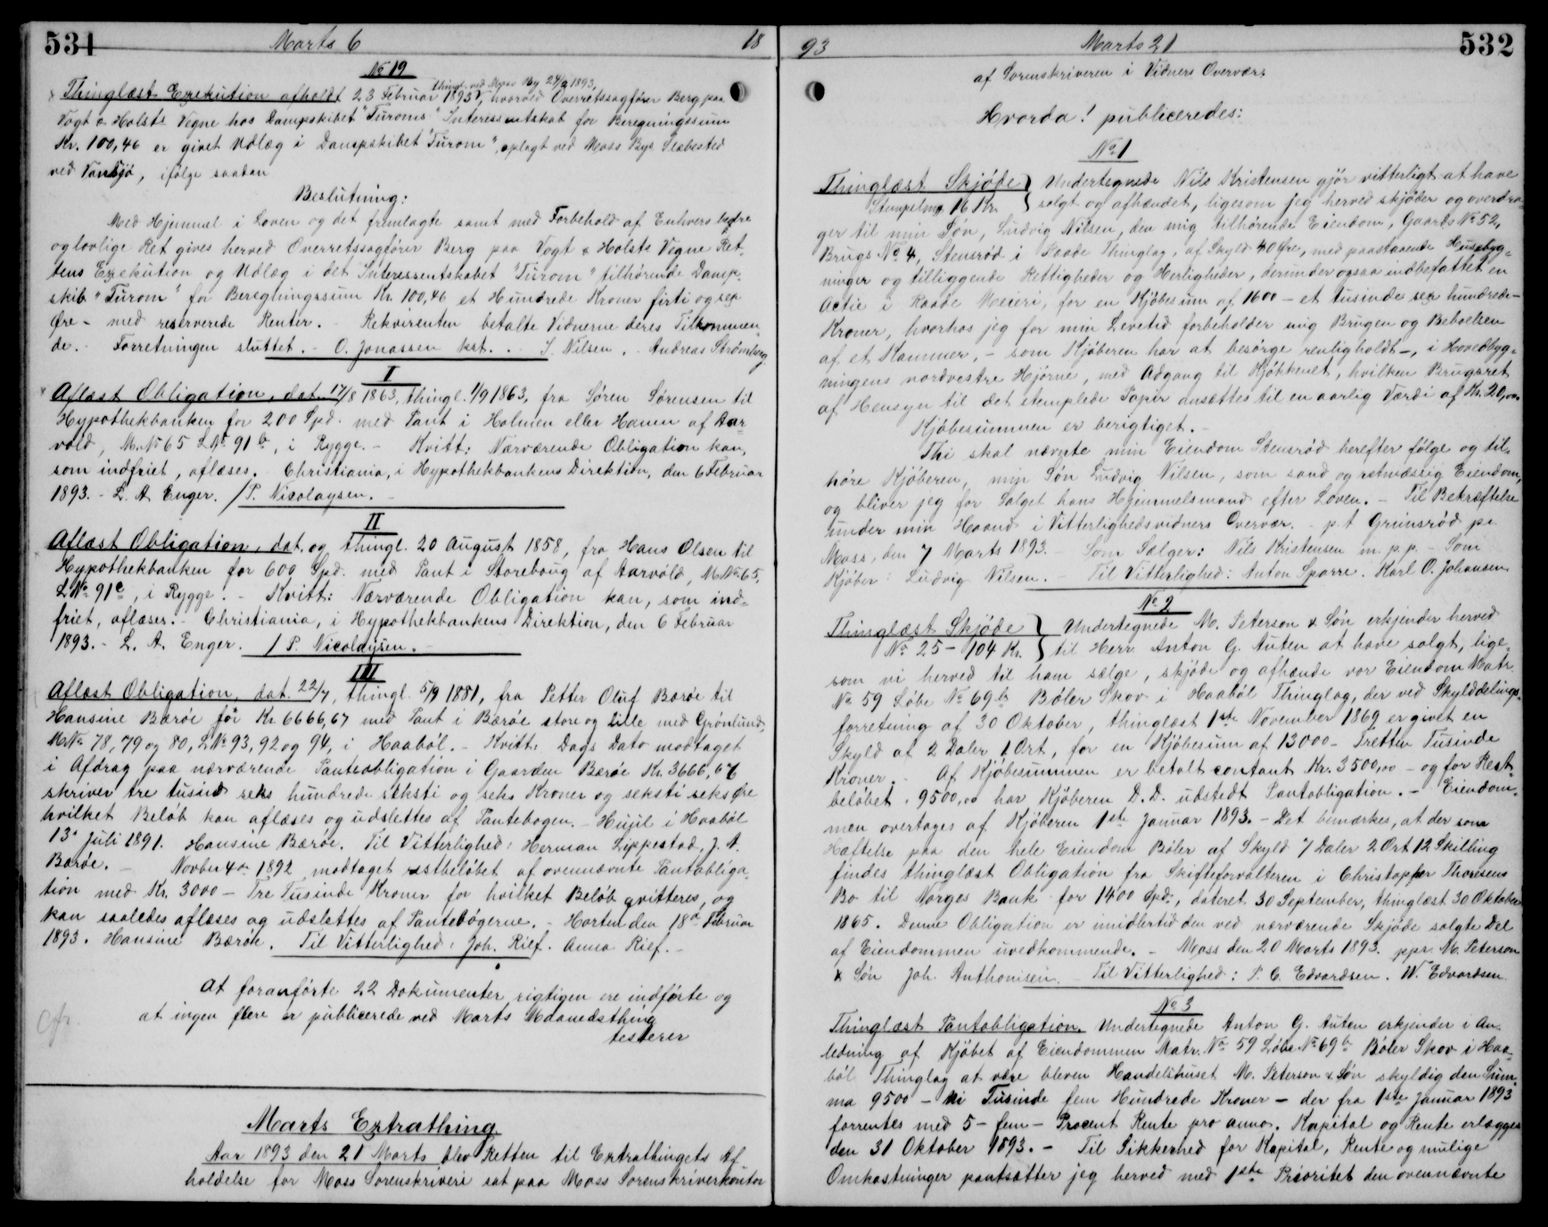 531
Marts 6
18
No 19
Thinglæst Exekution afholdt 23 Februar 1893, thingl. ved Moss By 24/2 1893, hvorved Overretssagfører Berg paa
Vogt & Holsts Vegne hos Dampskibet "Turoms" Interessentskab for Beregningssum
Kr. 100,46 er givet Udlæg i Dampskibet "Turom", oplagt ved Moss Bys Ladested
ved Vansjø, ifølge saadan
Beslutning:
Med Hjemmel i Loven og det fremlagte samt med Forbehold af Enhvers bedre
og lovlige Ret gives herved Overretssagfører Berg paa Vogt & Holsts Vegne Ret-
tens Exekution og Udlæg i det Interessentskabet "Turom" tilhørende Damp-
skib "Turom" for Beregningssum Kr. 100,46 et Hundrede Kroner firti og sex
Øre - med reserverede Renter. - Rekvirenten betalte Vidnerne deres Tilkommen-
de. - Forretningen sluttet. - O. Jonassen kst. - J. Nilsen. - Andreas Strømberg.
I
Aflæst Obligation, dat. 17/8 1863, thingl. 1/9 1863, fra Søren Sørensen til
Hypothekbanken for 200 Spd. med Pant i Holmen eller Hamn af Aar-
vold, M. No 65 L No 91 b, i Rygge. - Kvitt: Nærværende Obligation kan,
som indfriet, aflæses. Christiania, i Hypothekbankens Direktion, den 6 Februar
1893. - L. A. Enger. / P. Nicolaysen. -
II
Aflæst Obligation, dat. og thingl. 20 August 1858, fra Hans Olsen til
Hypothekbanken for 600 Spd. med Pant i Storehoug af Aarvold, M. No 65,
L No 91 c, i Rygge. - Kvitt: Nærværende Obligation kan, som ind-
friet, aflæses. - Christiania, i Hypothekbankens Direktion, den 6 Februar
1893. - L. A. Enger. / P. Nicolaysen. -
III
Aflæst Obligation, dat. 22/7, thingl. 5/9 1881, fra Petter Oluf Bærøe til
Hansine Bærøe for Kr. 6666,67 med Pant i Bærøe store og lille med Grønlund,
M No 78, 79 og 80, L No 93, 92 og 94, i Haabøl. - Kvitt: Dags Dato modtaget
i Afdrag paa nærværende Panteobligation i Gaarden Bærøe Kr. 3666,67
skriver tre tusind seks hundrede seksti og seks Kroner og seksti seks Øre
hvilket Beløb kan aflæses og udslettes af Pantebogen. - Hujil i Haabøl
13de Juli 1891. Hansine Bærøe. Til Vitterlighed: Herman Lippestad. J. A.
Bærøe. - Novber 4de 1892 modtaget restbeløbet af ovennævnte Pantobliga-
tion med Kr. 3000 - Tre Tusinde Kroner for hvilket Beløb qvitteres, og
kan saaledes aflæses og udslettes af Pantebøgerne. - Horten den 18de Februar
1893. Hansine Bærøe. Til Vitterlighed: Joh. Rief. Anna Rief. -
At foranførte 22 Dokumenter rigtigen ere indførte og
at ingen flere er publicerede ved Marts Maanedsthing
testerer
Marts Extrathing
Aar 1893 den 21 Marts blev Retten til Extrathingets Af-
holdelse for Moss Sorenskriveri sat paa Moss Sorenskriverkontor
93
Marts 21
532
af Sorenskriveren i Vidners Overvær.
Hvorda! publiceredes:
No 1
Thinglæst Skjøde } Undertegnede Nils Kristensen gjør vitterligt at have
Stempelmg. 16 Kr. } solgt og afhændet, ligesom jeg herved skjøder og overdra-
ger til min Søn, Ludvig Nilsen, den mig tilhørende Eiendom, Gaards No 52,
Brugs No 4, Stensrød i Raade Thinglag, af Skyld 40 Øre, med paastaaende Husebyg-
ninger og tilliggende Rettigheder og Herligheder, derunder ogsaa indbefattet en
Actie i Raade Meieri, for en Kjøbesum af 1600 - et tusinde sex hundrede -
Kroner, hvorhos jeg for min Levetid forbeholder mig Brugen og Beboelsen
af et Kammer, - som Kjøberen har at besørge renligholdt -, i Hovedbyg-
ningens nordvestre Hjørne, med Adgang til Kjøkkenet, hvilken Brugsret
af Hensyn til det stemplede Papir ansættes til en aarlig Værdi af Kr. 20,00
Kjøbesummen er berigtiget. -
Thi skal nævnte min Eiendom Stensrød herefter følge og til-
høre Kjøberen, min Søn Ludvig Nilsen, som sand og retmæssig Eiendom,
og bliver jeg for Salget hans Hjemmelsmand efter Loven. - Til Bekræftelse
under min Haand i Vitterlighedsvidners Overvær. - p. t. Grimsrød pr.
Moss, den 7 Marts 1893. - Som Sælger: Nils Kristensen m. p. p. - Som
Kjøber: Ludvig Nilsen. - Til Vitterlighed: Anton Sparre. Karl O. Johansen.
No 2
Thinglæst Skjøde } Undertegnede M. Peterson & Søn erkjender herved
No 25 - 104 Kr. } til Herr Anton G. Auten at have solgt, lige-
som vi herved til ham sælge, skjøde og afhænde vor Eiendom Matr.
No 59 Løbe No 69 b Bøler Skov i Haabøl Thinglag, der ved Skylddelings-
forretning af 30 Oktober, thinglæst 1ste November 1869 er givet en
Skyld af 2 Daler 1 Ort, for en Kjøbesum af 13000 - Tretten Tusinde
Kroner. - Af Kjøbesummen er betalt contant Kr. 3500,00 - og for Rest-
beløbet, 9500,00 har Kjøberen D. D. udstedt Pantobligation. - Eiendom-
men overtages af Kjøberen 1ste Januar 1893. - Det bemærkes, at der som
Hæftelse paa den hele Eiendom Bøler af Skyld 7 Daler 2 Ort 12 Skilling
findes thinglæst Obligation fra Skifteforvalteren i Christopher Thoresens
Bo til Norges Bank for 1400 Spd., dateret 30 September, thinglæst 30 Oktober
1865. Denne Obligation er imidlertid den ved nærværende Skjøde solgte Del
af Eiendommen uvedkommende. - Moss den 20 Marts 1893. ppr. M. Peterson
& Søn Joh. Anthonisen. - Til Vitterlighed: P. C. Edvardsen. W. Edvardsen.
No 3
Thinglæst Pantobligation. Undertegnede Anton G. Auten erkjender i An-
ledning af Kjøbet af Eiendommen Matr. No 59 Løbe No 69 b Bøler Skov i Haa-
bøl Thinglag at være bleven Handelshuset M. Peterson & Søn skyldig den Sum-
ma 9500 - Ni Tusinde fem Hundrede Kroner - der fra 1ste Januar 1893
forrentes med 5 - fem - Procent Rente pro anno. Kapital og Rente erlægges
den 31 Oktober 1893. - Til Sikkerhed for Kapital, Rente og mulige
Omkostninger pantsætter jeg herved med 1ste Prioritet den ovennævnte